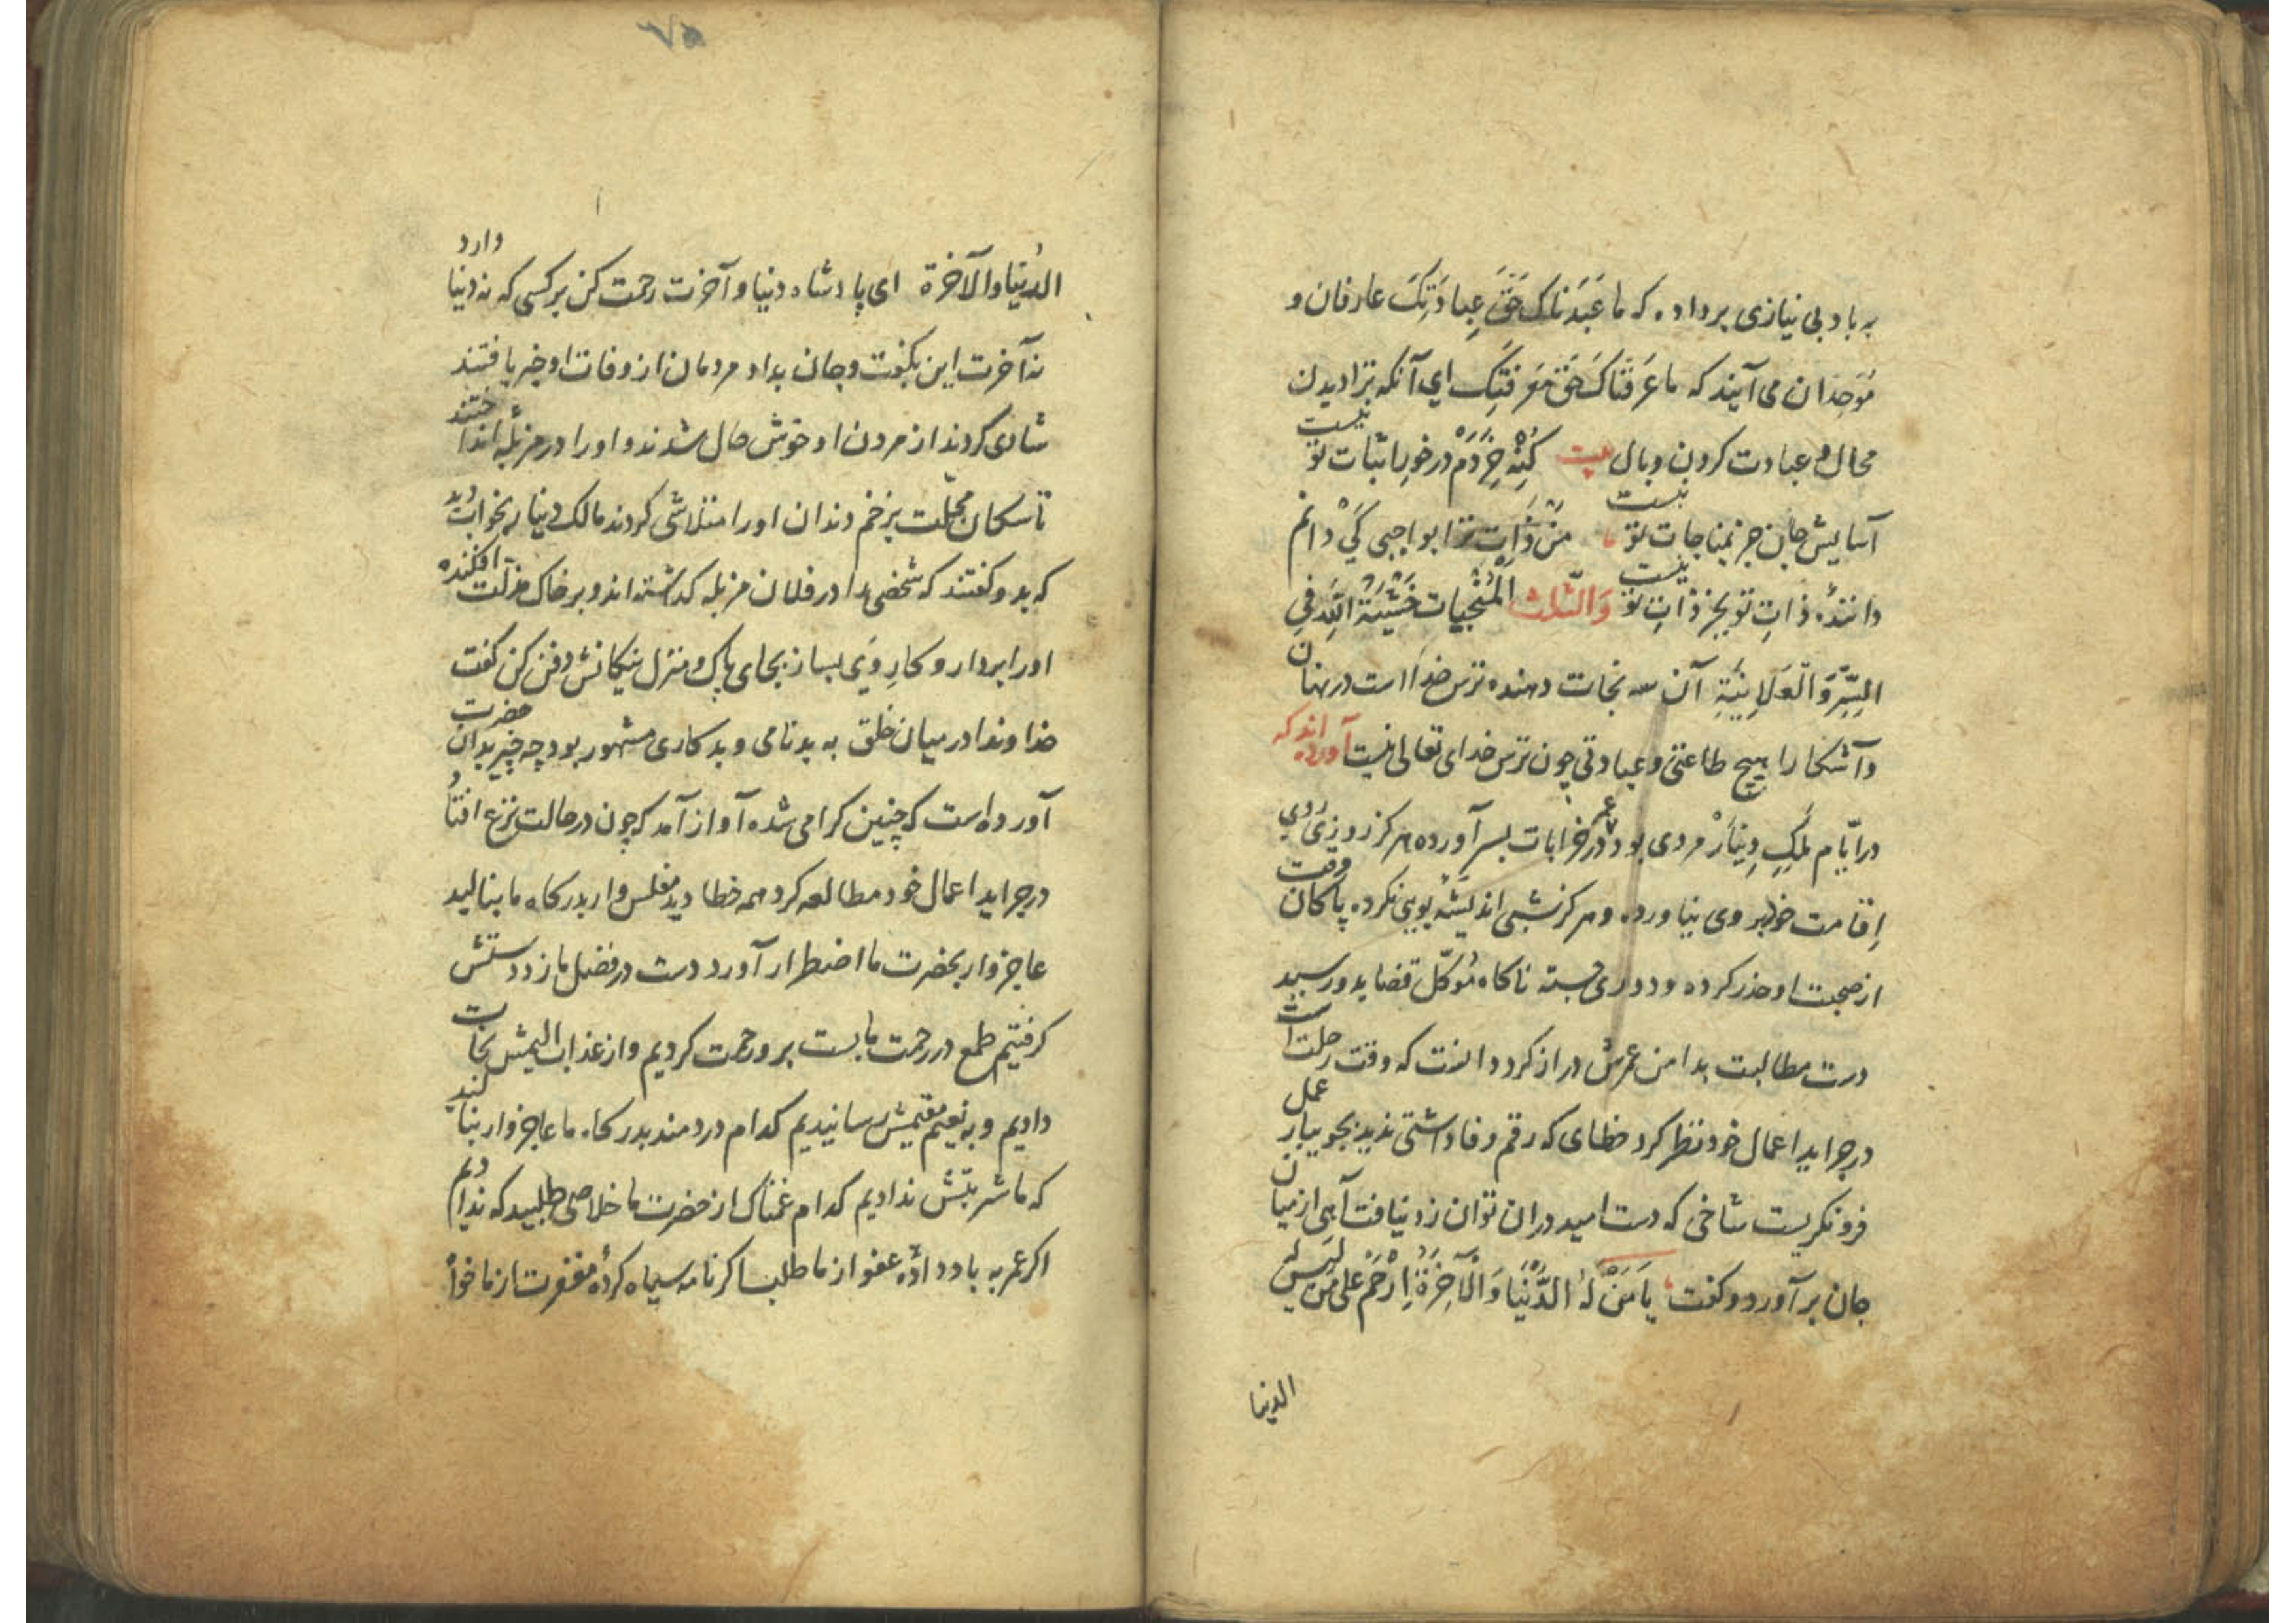 به باد بی نیازی برداده که ما عَبَدناکَ حَقَّ عِبادَتِکَ عارفان و
مُوَحِدان می آیند که ما عَرَفناکَ حَقَّ مَعرِفَتِکَ ای آنکه ترا دیدن
محال و عبادت کردن وبال بیت کُنْهِ خِرَدَمْ درخورِ اثبات تو نیست
آسایش جان جز بمناجات تو نیست من ذات ترا بواجبی کَیْ دانم
دانندهٔ ذات تو بجز ذاتِ تو نیست وَالثَّلاث الْمُنْجِیات خَشْیَةُ اللّٰهِ فِی
السِّرِّ وَالْعَلَانِیَةِ آن سه نجات دهنده ترس خدا است در نهان
و آشکارا هیچ طاعتی و عبادتی چون ترس خدای تعالی نیست آورده اند که
در ایّام مَلِکِ دِینارْ مردی بود عمر در خرابات بسر آورده هرکز روزی روی
اِقامت خود بروی نیاورده و هرکز شبی اندیشه توبه نکرده پاکان وقت
از صحبت او حذر کرده و دوری جسته ناکاه مُوکّل قضا بدو رسید
دست مطالبت بدامن عمرش دراز کرد دانست که وقت رحلت است
در جراید اعمال خود نظر کرد خطای که رقم وفا داشتی ندید بجویبار عمل
فرو نکریست شاخی که دست امید در ان توان زد نیافت آهی از میان
جان برآورد و کفت یَا مَنْ لَهُ الدُّنْیَا وَالْآخِرَةُ اِرْحَمْ علی من لَیس لَه
الدنیا
۷۵
الدُنیَا والآخرة ای پادشاه دنیا و آخرت رحمت کن بر کسی که نه دنیا دارد
نه آخرت این بکفت و جان بداد مردمان از وفات او خبر یافتند
شادی کردند از مردن او خوش حال شدند و او را در مزبله انداختند
تا سکان محلّت بزخم دندان او را متلاشی کردند مالک دینار بخواب دید
که بدو کفتند که شخصی را در فلان مزبله کداشته اند و بر خاک مذلّت افکنده
او را بردار و کارِ وَی بساز بجای پاک و منزل نیکانش دفن کن کفت
خداوندا در میان خلق به بدنامی و بدکاری مشهور بود چه چیز بدان حضرت
آورده است که چنین کرامی شده آواز آمد که چون در حالت نزع افتاد
در جراید اعمال خود مطالعه کرد همه خطا دید مفلس وار بدرکاه ما بنالید
عاجزوار بحضرت ما اضطرار آورد دست در فضل ما زد دستش
کرفتیم طمع در رحمت ما بست برو رحمت کردیم و از عذاب الیمش نجات
دادیم و به نعیم مقیمش رسانیدیم کدام دردمند بدرکاه ما عاجزوار بنالید
که ما شربتش ندادیم کدام غمناک از حضرت ما خلاصی طلبید که ندادیم
اکر عمر به باد دادهٔ عفو از ما طلب اکر نامه سیاه کردهٔ مغفرت از ما خواه